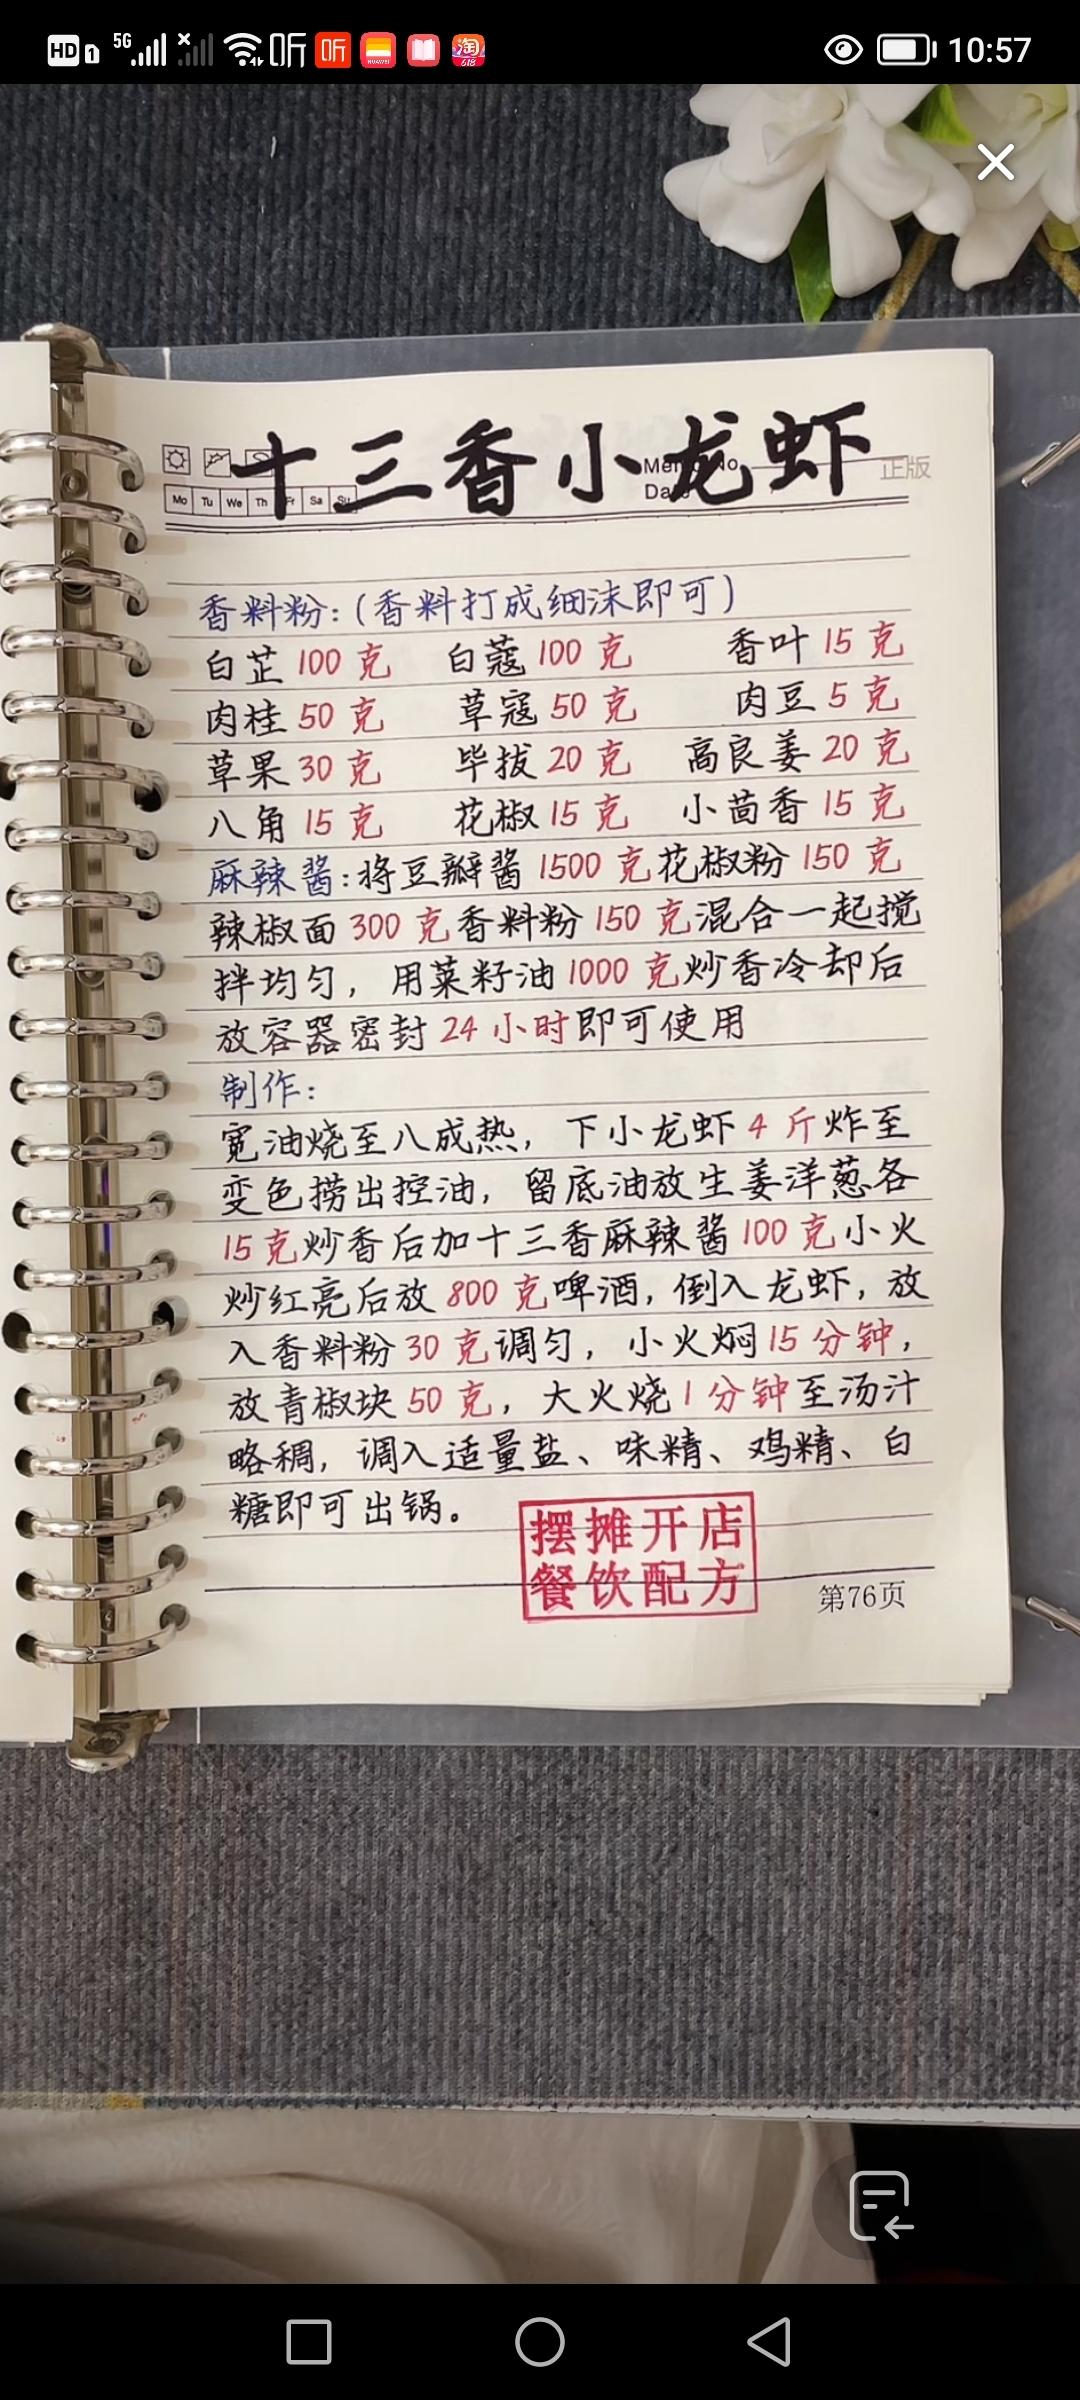 HD 1 5G 听 听 HUAWEI 淘 618 10:57
十三香小龙虾
正版
Mo Tu We Th Fr Sa Su
香料粉:(香料打成细沫即可)
白芷 100 克 白蔻 100 克 香叶 15 克
肉桂 50 克 草寇 50 克 肉豆 5 克
草果 30 克 毕拔 20 克 高良姜 20 克
八角 15 克 花椒 15 克 小茴香 15 克
麻辣酱:将豆瓣酱 1500 克花椒粉 150 克
辣椒面 300 克香料粉 150 克混合一起搅
拌均匀，用菜籽油 1000 克炒香冷却后
放容器密封 24 小时即可使用
制作:
宽油烧至八成热，下小龙虾 4 斤炸至
变色捞出控油，留底油放生姜洋葱各
15 克炒香后加十三香麻辣酱 100 克小火
炒红亮后放 800 克啤酒，倒入龙虾，放
入香料粉 30 克调匀，小火焖 15 分钟，
放青椒块 50 克，大火烧 1 分钟至汤汁
略稠，调入适量盐、味精、鸡精、白
糖即可出锅。
摆摊开店
餐饮配方
第76页